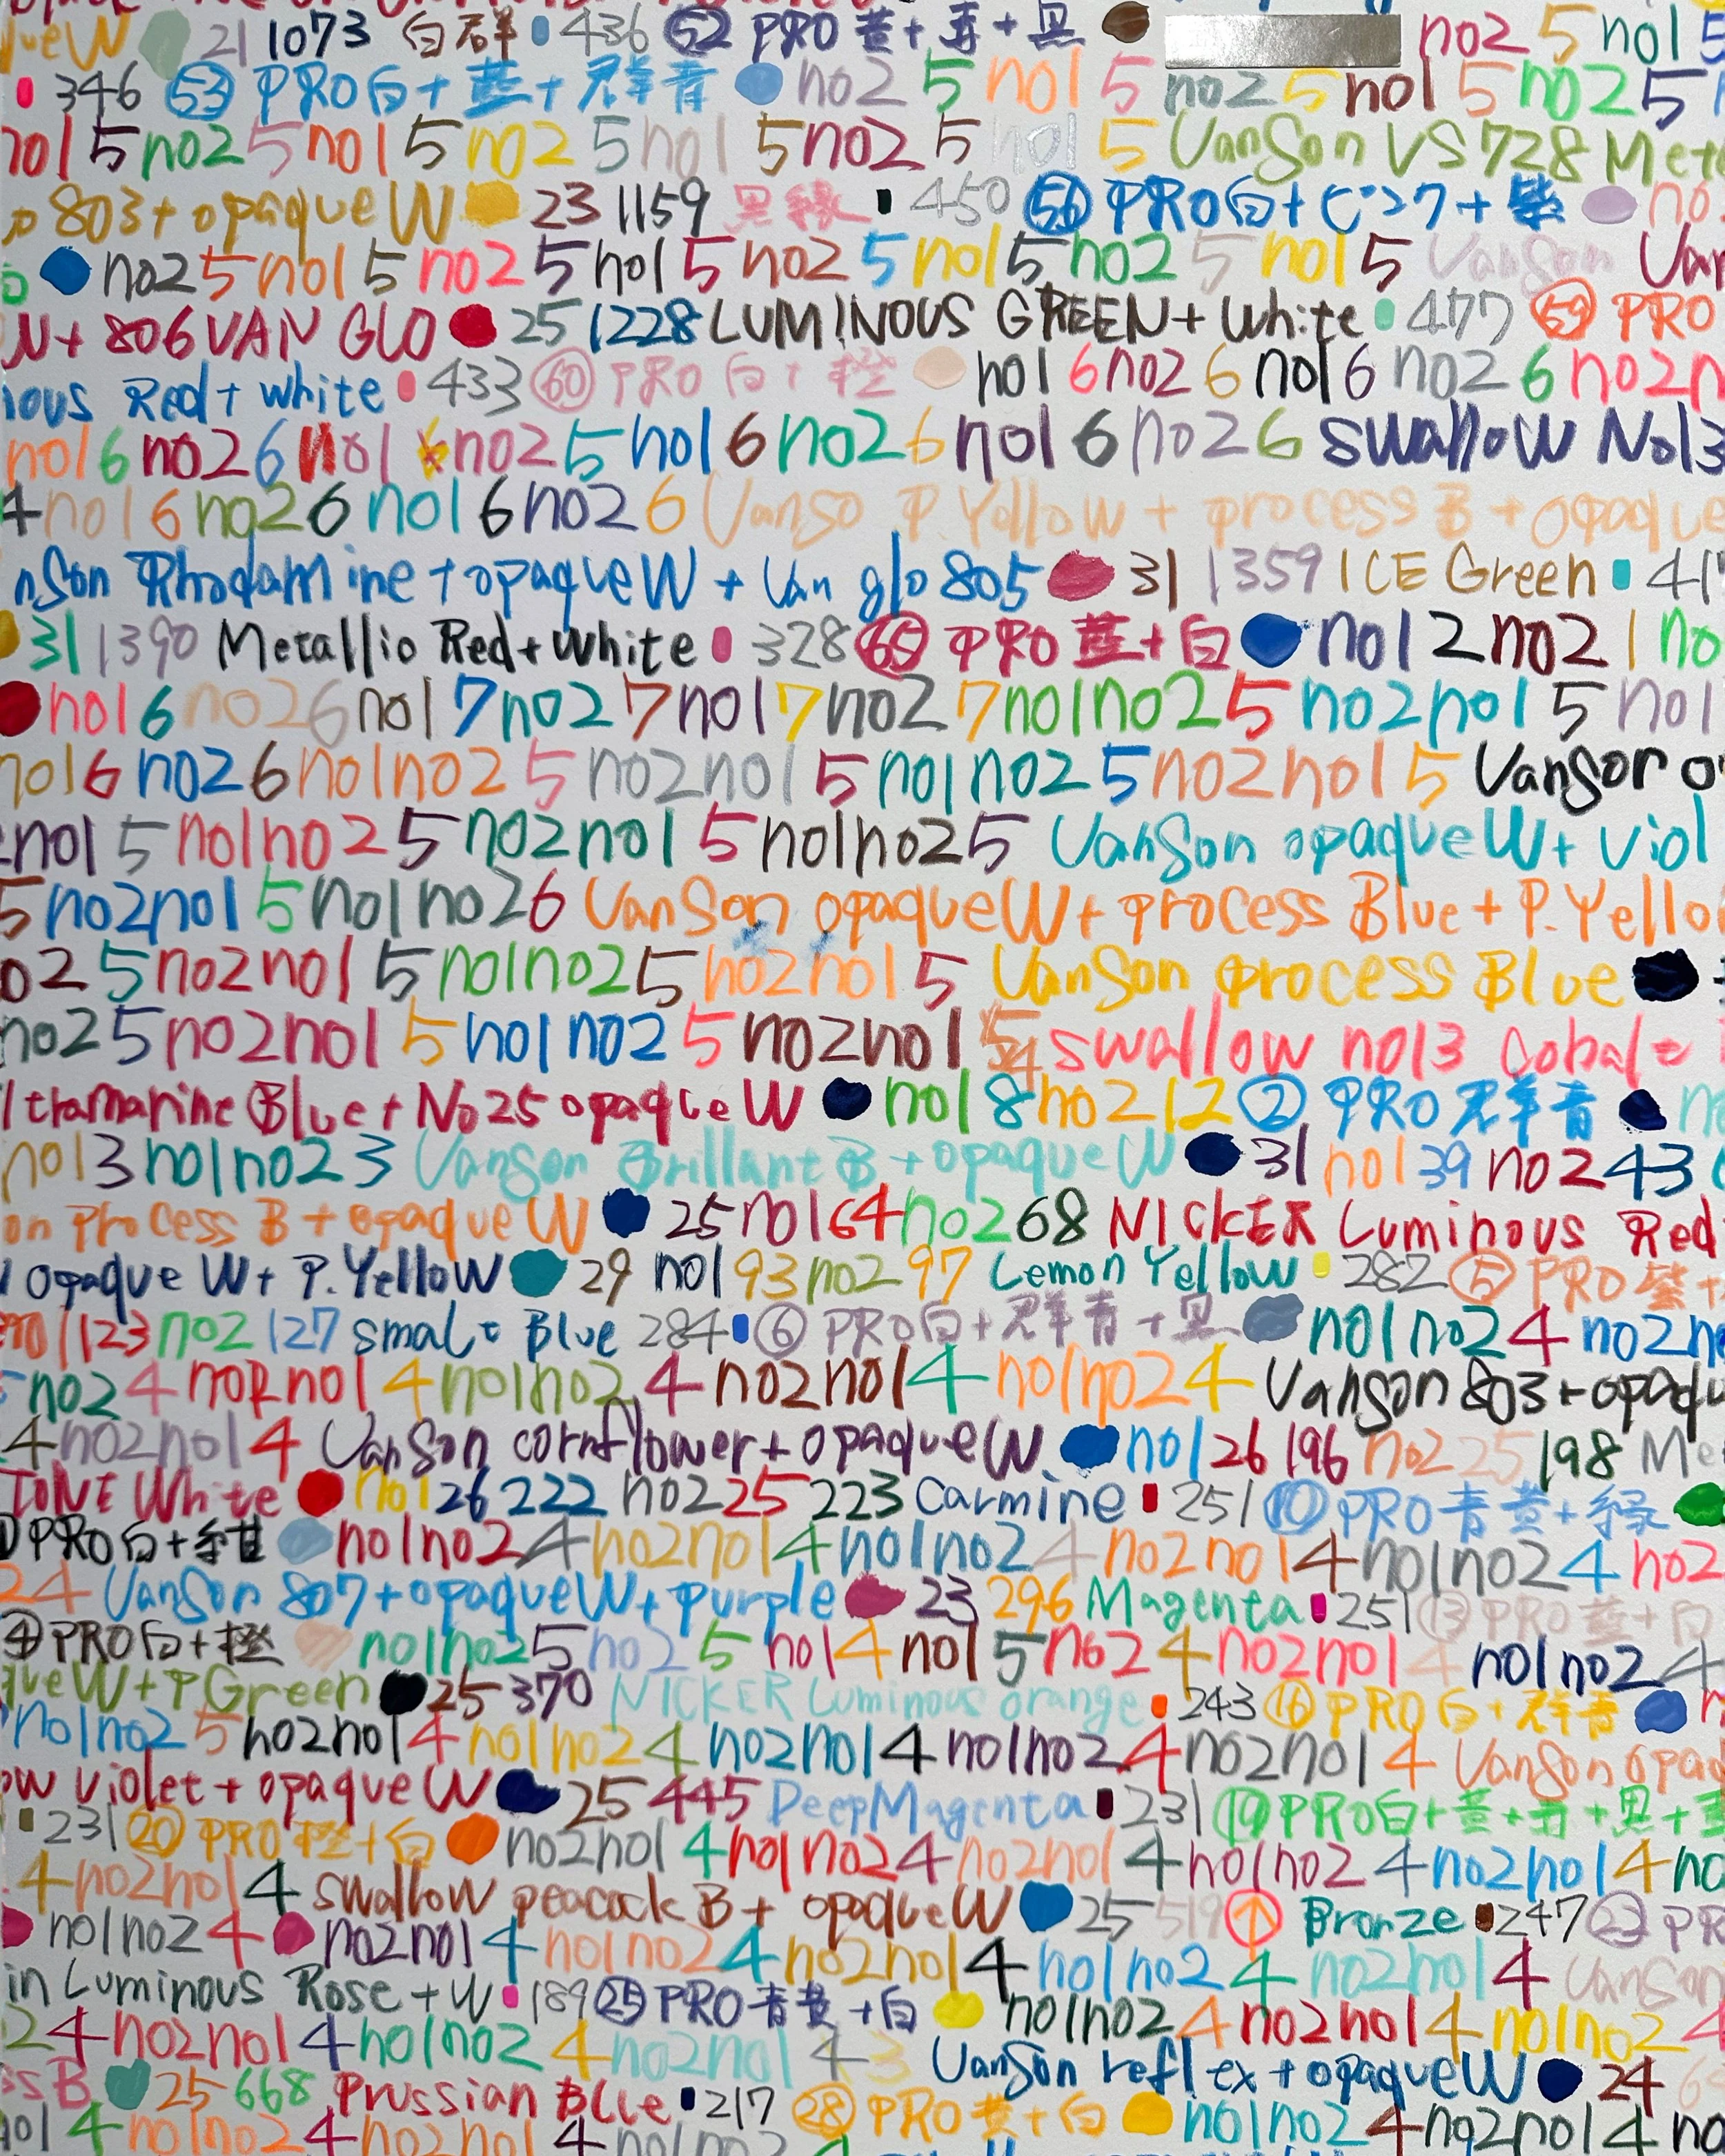 ueW 21 1073 白群 436 52 PRO 黄+青+黒 no2 5 no1 5
346 53 PRO白+藍+群青 no2 5 no1 5 no2 5 no1 5 no2 5
no1 5 no2 5 no1 5 no2 5 no1 5 no2 5 no1 5 VanSon VS728 Meta
803+opaqueW 23 1159 黒緑 450 56 PRO白+ピンク+紫 no
no2 5 no1 5 no2 5 no1 5 no2 5 no1 5 no2 5 no1 5 VanSon Van
W+806 VAN GLO 25 1228 LUMINOUS GREEN+White 477 59 PRO
ious Red+white 433 60 PRO白+橙 no1 6 no2 6 no1 6 no2 6 no2 n
no1 6 no2 6 no1 no2 5 no1 6 no2 6 no1 6 no2 6 swallow No13
4 no1 6 no2 6 no1 6 no2 6 Vanso P Yellow+process B+opaque
nSon Rhodamine+opaqueW+Van glo 805 31 1359 ICE Green 41
31 1390 Metallic Red+white 328 65 PRO 藍+白 no1 2 no2 1 no
no1 6 no2 6 no1 7 no2 7 no1 7 no2 7 no1no2 5 no2no1 5 no1
no1 6 no2 6 no1no2 5 no2no1 5 no1no2 5 no2no1 5 Vanson o
no1 5 no1no2 5 no2no1 5 no1no2 5 VanSon opaqueW+Viol
5 no2no1 5 no1no2 6 VanSon opaqueW+process Blue+P.Yello
o2 5 no2no1 5 no1no2 5 no2no1 5 VanSon process Blue
no2 5 no2no1 5 no1no2 5 no2no1 swallow no13 Cobalt
ltramarine Blue+No25 opaqueW no1 8 no2 12 2 PRO 群青 n
no1 3 no1no2 3 VanSon Brillant B+opaqueW 31 no1 39 no2 43
on Process B+opaqueW 25 no1 64 no2 68 NICKER Luminous Red
opaque W+P.Yellow 29 no1 93 no2 97 Lemon Yellow 282 5 PRO 紫+
no1 123 no2 127 smalt Blue 284 6 PRO白+群青+黒 no1no2 4 no2no
no2 4 no2no1 4 no1no2 4 no2no1 4 no1no2 4 Vanson 803+opaqu
4 no2no1 4 VanSon cornflower+opaqueW no1 26 196 no2 25 198 Me
TONE White no1 26 222 no2 25 223 Carmine 251 10 PRO 青黄+緑
PRO白+紺 no1no2 4 no2no1 4 no1no2 4 no2no1 4 no1no2 4 no2
24 VanSon 807+opaqueW+purple 23 296 Magenta 251 13 PRO 藍+白
4 PRO白+橙 no1no2 5 no2 5 no1 4 no1 5 no2 4 no2no1 4 no1no2 4
queW+PGreen 25 370 NICKER Luminous orange 243 16 PRO白+群青
no1no2 5 no2no1 4 no1no2 4 no2no1 4 no1no2 4 no2no1 4 VanSon opaq
ow violet+opaqueW 25 445 DeepMagenta 231 19 PRO白+黄+青+黒+
231 20 PRO 橙+白 no2no1 4 no1no2 4 no2no1 4 no1no2 4 no2no1 4 no
4 no2no1 4 swallow peacock B+opaqueW 25 519 ↑ Bronze 247 23 PR
no1no2 4 no2no1 4 no1no2 4 no2no1 4 no1no2 4 no2no1 4 VanSon
in Luminous Rose+W 189 25 PRO 青黄+白 no1no2 4 no2no1 4 no1no2 4
24 no2no1 4 no1no2 4 no2no1 4 3 VanSon reflex+opaqueW 24
ss B 25 668 Prussian Blue 217 28 PRO 黄+白 no1no2 4 no2no1 4 no
no1 4 no1no2 4 no2no1 4 no1no2